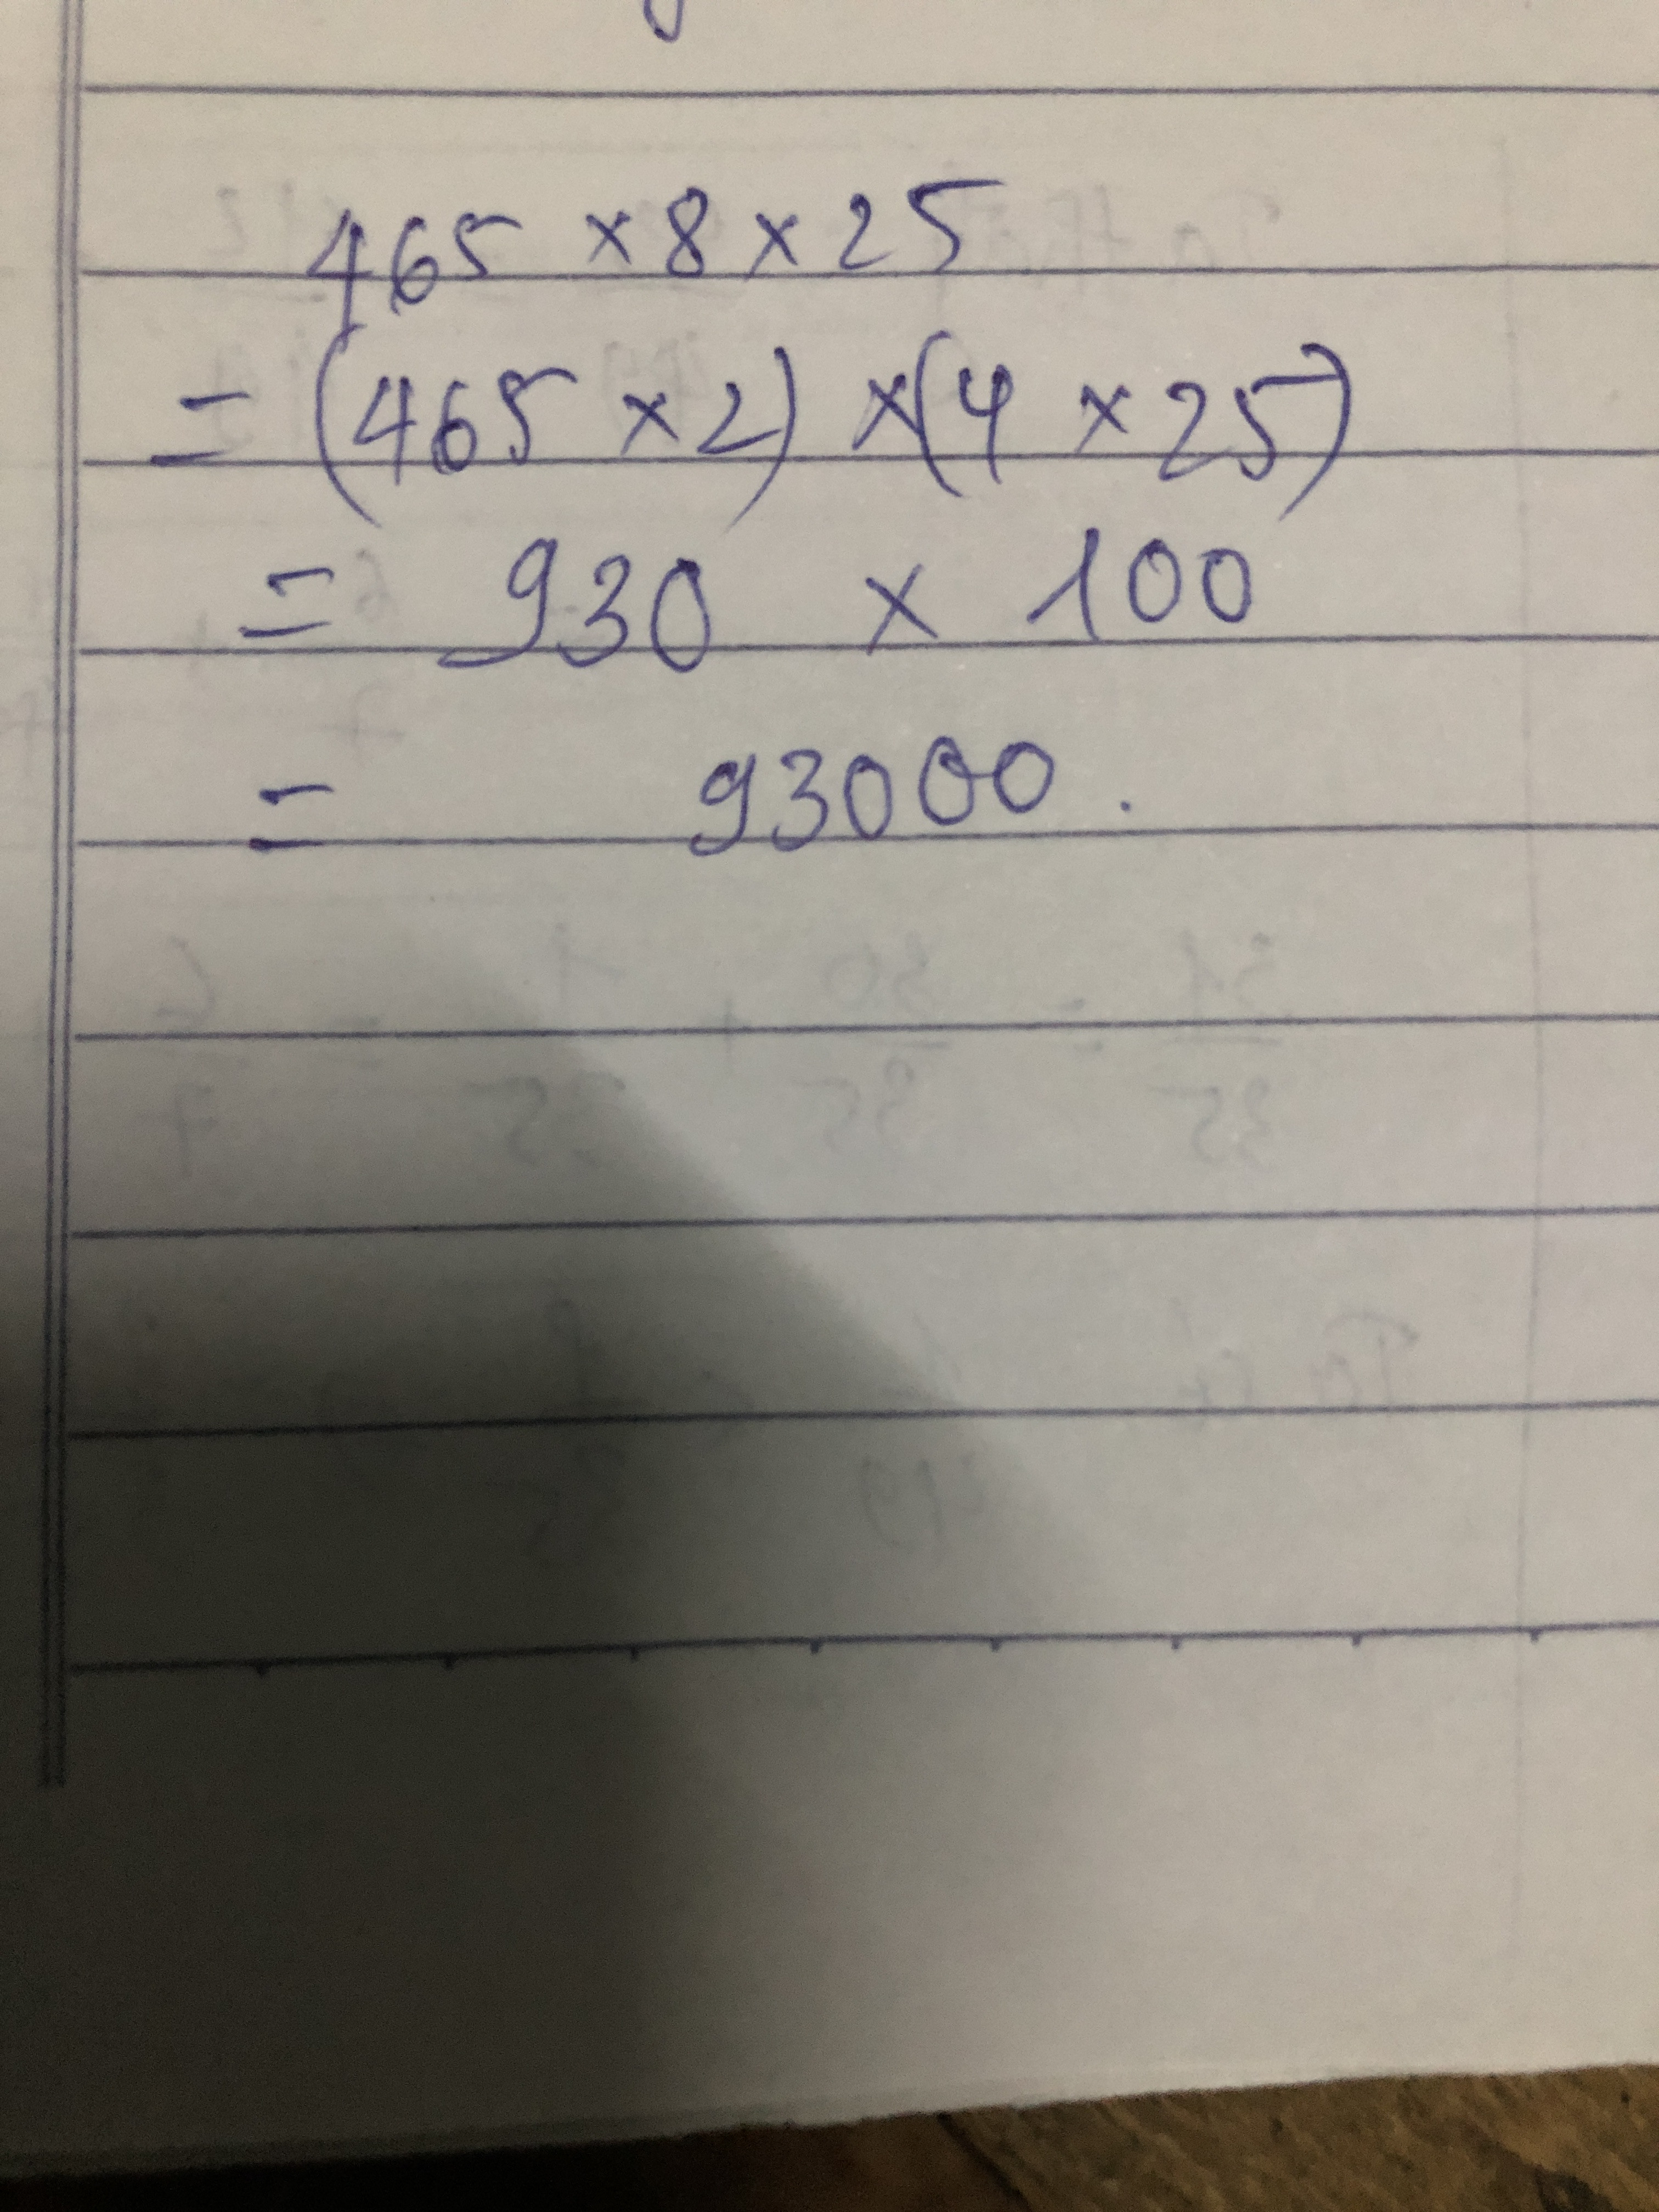 465 × 8 × 25
= (465 × 2) × (4 × 25)
= 930 × 100
= 93000.